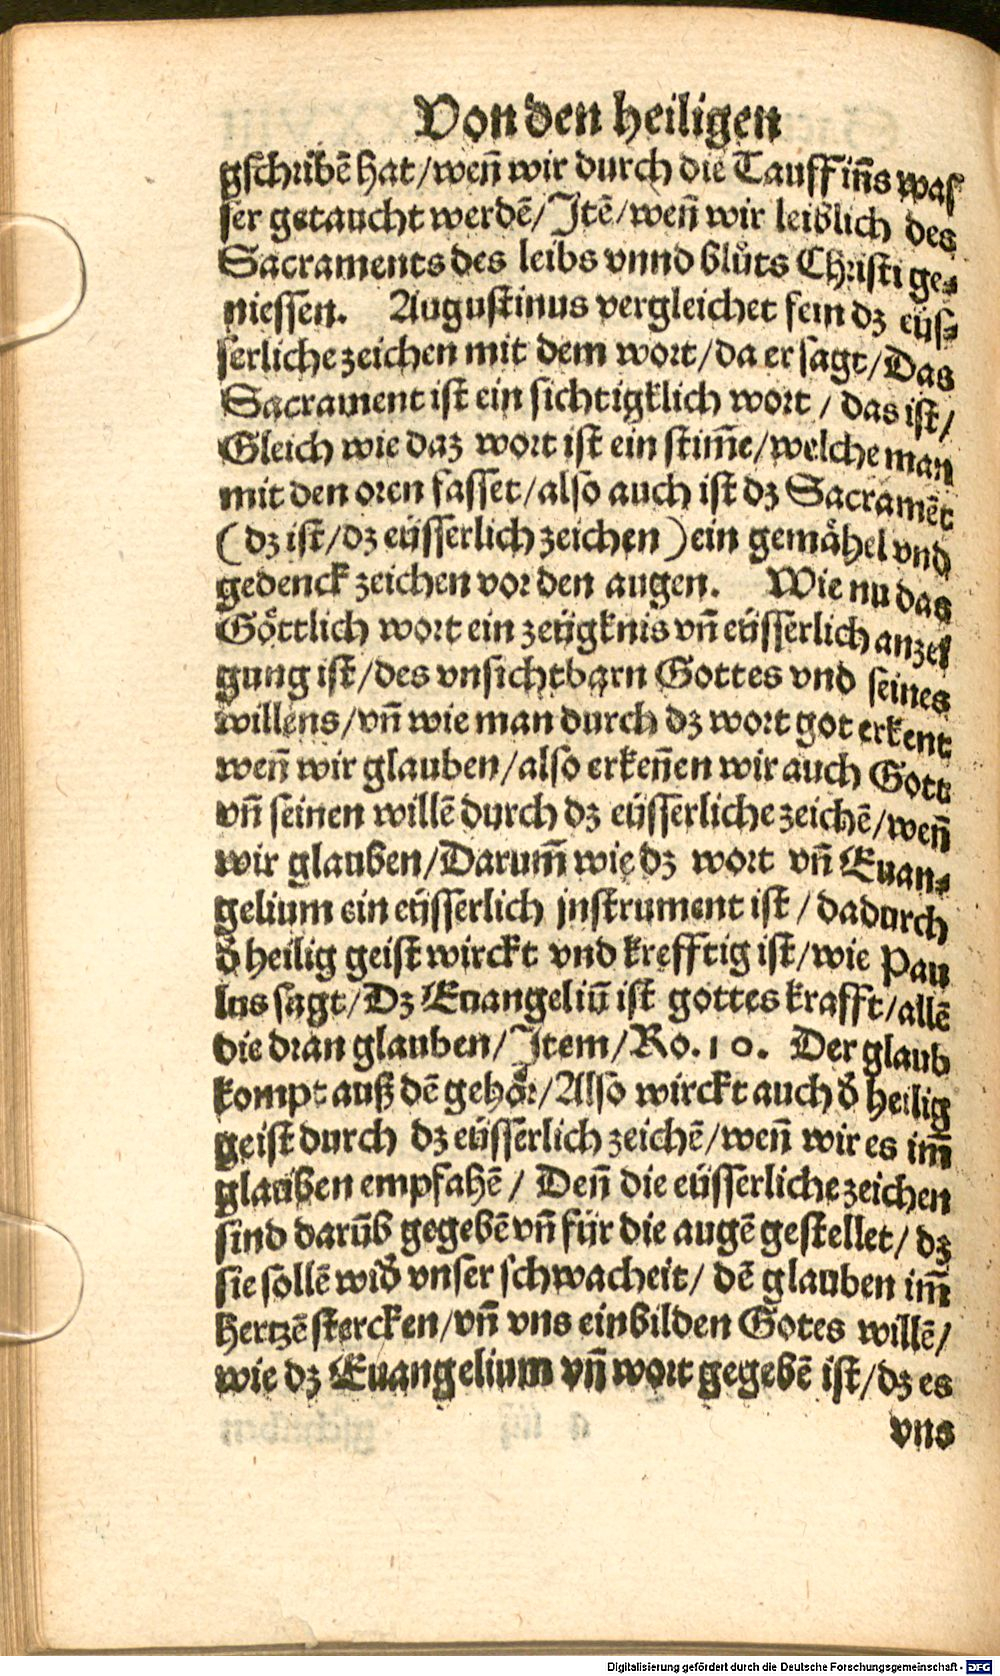 Von den heiligen
gschribē hat/weñ wir durch die Tauff iñs was
ser getaucht werdē/Itē/weñ wir leiblich des
Sacraments des leibs vnnd blůts Christi ge⸗
niessen. Augustinus vergleichet fein dz eüs⸗
serliche zeichen mit dem wort/da er sagt/Das
Sacrament ist ein sichtigklich wort/das ist/
Gleich wie daz wort ist ein stim̄e/welche man
mit den oren fasset/also auch ist dz Sacramēt
(dz ist/dz eüsserlich zeichen) ein gemåhel vnd
gedenck zeichen vor den augen. Wie nu das
Göttlich wort ein zeügknis vñ eüsserlich anzei
gung ist/des vnsichtbarn Gottes vnd seines
willens/vñ wie man durch dz wort got erkent
weñ wir glauben/also erkeñen wir auch Gott
vñ seinen willē durch dz eüsserliche zeichē/weñ
wir glauben/Darum̄ wie dz wort vñ Euan⸗
gelium ein eüsserlich jnstrument ist/dadurch
d̄ heilig geist wirckt vnd krefftig ist/wie Pau
lus sagt/Dz Euangeliū ist gottes krafft/allē
die dran glauben/Item/Ro.10. Der glaub
kompt auß dē gehör/Also wirckt auch d̄ heilig
geist durch dz eüsserlich zeichē/weñ wir es im̄
glauben empfahē/Deñ die eüsserliche zeichen
sind darūb gegebē vñ für die augē gestellet/dz
sie sollē wid̄ vnser schwacheit/dē glauben im̄
hertzē stercken/vñ vns einbilden Gotes willē/
wie dz Euangelium vñ wort gegebē ist/dz es
vns
Digitalisierung gefördert durch die Deutsche Forschungsgemeinschaft - DFG